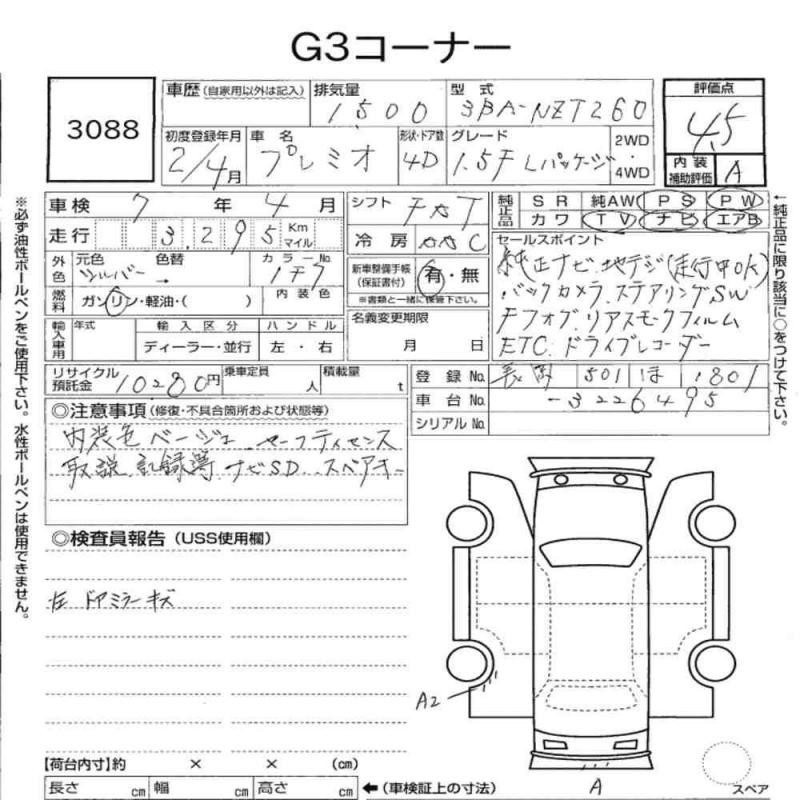 G3コーナー
3088
車歴 (自家用以外は記入) 排気量 1,500 型式 3BA-NZT260
評価点 4.5
初度登録年月 2/4月 車名 プレミオ 形状・ドア数 4D グレード 1.5F Lパッケージ 2WD・4WD
内装補助評価 A
車検 7年 4月
走行 3,295 Km マイル
シフト FAT
冷房 AAC
純正品 SR 純AW PS PW
カワ TV ナビ エアB
外色 元色 シルバー 色替 → カラーNo. 1F7
燃料 ガソリン・軽油・( ) 内装色
新車整備手帳 (保証書付) 有・無
※書類と一緒に保管下さい。
セールスポイント
純正ナビ.地デジ(走行中OK)
バックカメラ.ステアリングSW
Fフォグ.リアスモークフィルム
ETC.ドライブレコーダー
輸入車用 年式 輸入区分 ハンドル
ディーラー・並行 左・右
名義変更期限
月 日
リサイクル預託金 10280円 乗車定員 人 積載量 t
登録No. 長岡 501 ほ 1801
車台No. -3226495
シリアルNo.
◎注意事項 (修復・不具合箇所および状態等)
内装色 ベージュ セーフティセンス
取説 記録簿 ナビSD スペアキー
◎検査員報告 (USS使用欄)
左ドアミラーキズ
A2
A
スペア
【荷台内寸】約 × × (cm)
長さ cm 幅 cm 高さ cm ←(車検証上の寸法)
※必ず油性ボールペンをご使用下さい。水性ボールペンは使用できません。
←純正品に限り該当に○をつけて下さい。